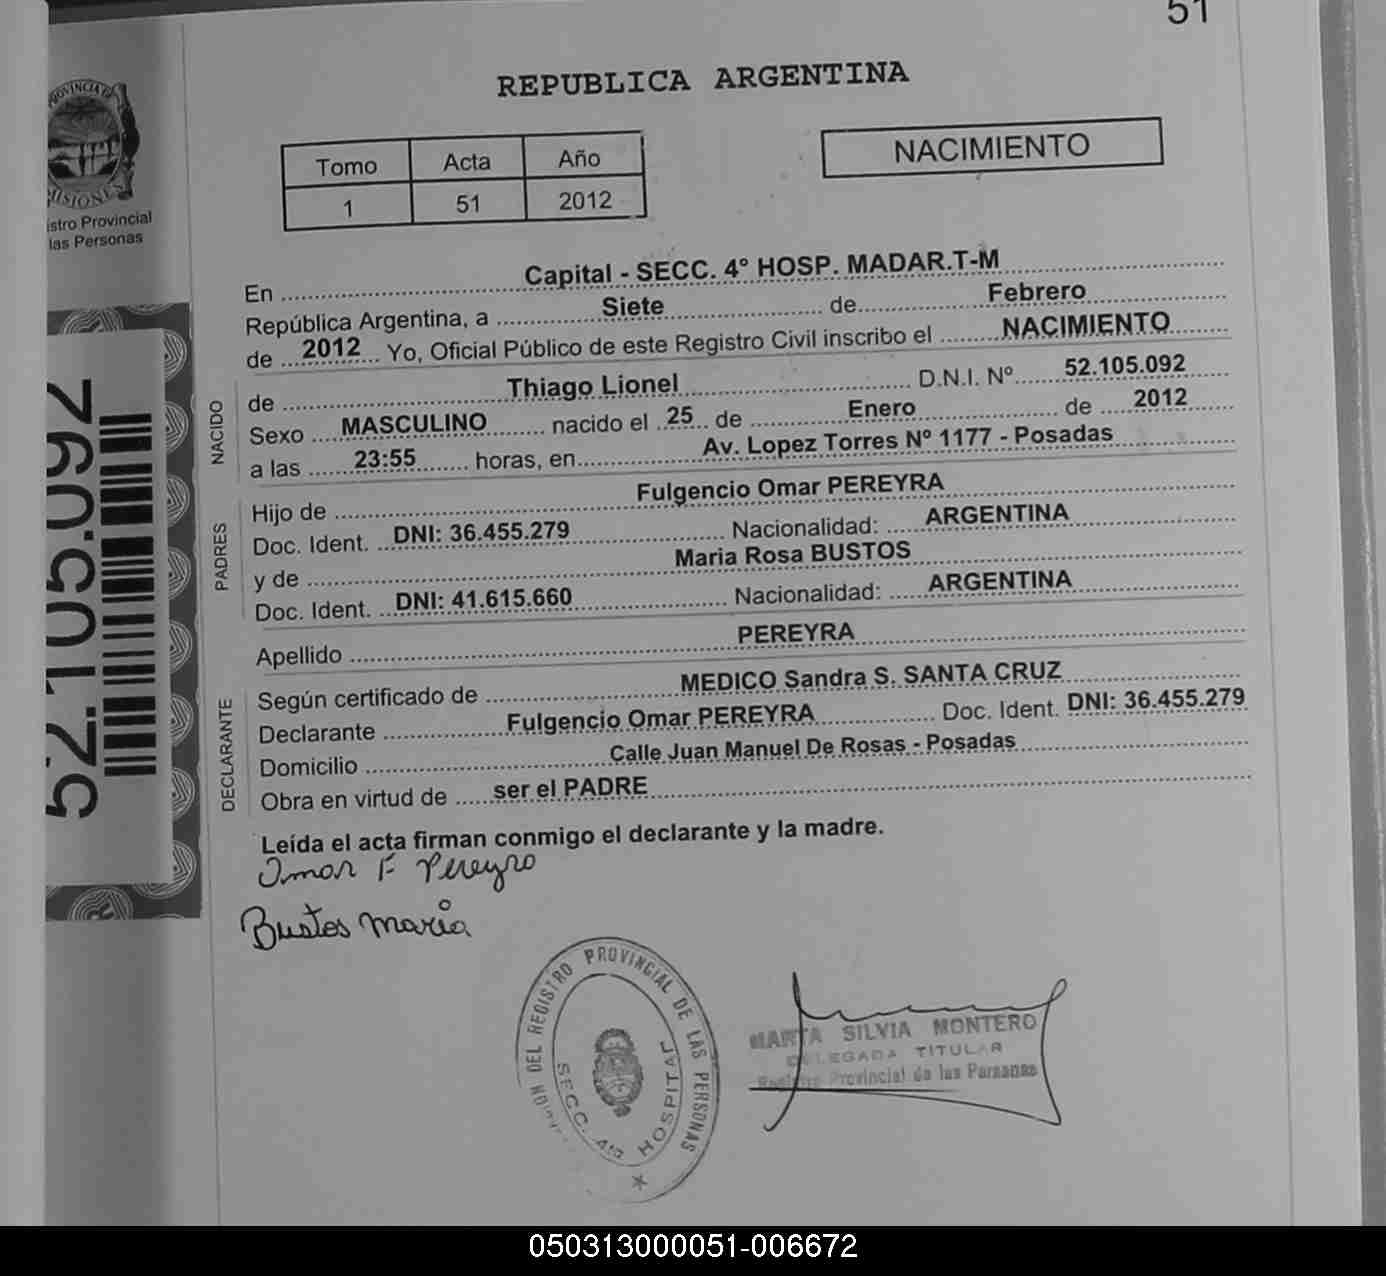 51
REPUBLICA ARGENTINA
Tomo Acta Año
1 51 2012
NACIMIENTO
PROVINCIA DE
MISIONES
istro Provincial
las Personas
52.105.092
En Capital - SECC. 4° HOSP. MADAR.T-M
República Argentina, a Siete de Febrero
de 2012 Yo, Oficial Público de este Registro Civil inscribo el NACIMIENTO
NACIDO
de Thiago Lionel D.N.I. Nº 52.105.092
Sexo MASCULINO nacido el 25 de Enero de 2012
a las 23:55 horas, en Av. Lopez Torres Nº 1177 - Posadas
PADRES
Hijo de Fulgencio Omar PEREYRA
Doc. Ident. DNI: 36.455.279 Nacionalidad: ARGENTINA
y de Maria Rosa BUSTOS
Doc. Ident. DNI: 41.615.660 Nacionalidad: ARGENTINA
Apellido PEREYRA
DECLARANTE
Según certificado de MEDICO Sandra S. SANTA CRUZ
Declarante Fulgencio Omar PEREYRA Doc. Ident. DNI: 36.455.279
Domicilio Calle Juan Manuel De Rosas - Posadas
Obra en virtud de ser el PADRE
Leída el acta firman conmigo el declarante y la madre.
Omar F Pereyra
Bustos Maria
DEL REGISTRO PROVINCIAL DE LAS PERSONAS
SECC. 4ta HOSPITAL
MARTA SILVIA MONTERO
DELEGADA TITULAR
Registro Provincial de las Personas
050313000051-006672